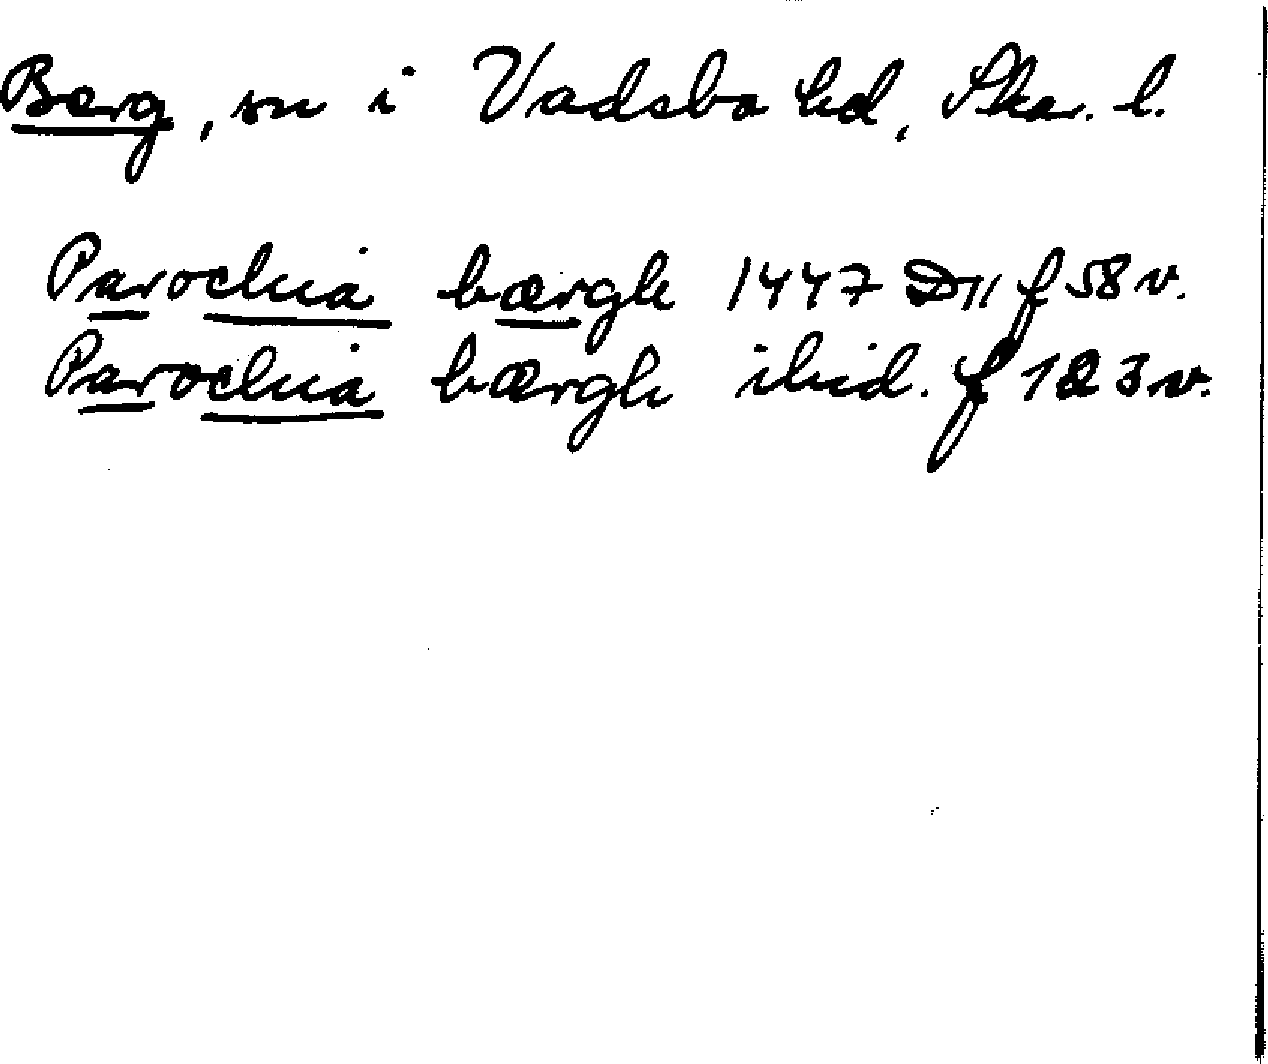 Berg, sn i Vadsbo hd, Skar. l.
Parochia bærgh 1447 D11 f 58 v.
Parochia bærgh ibid. f 123 v.